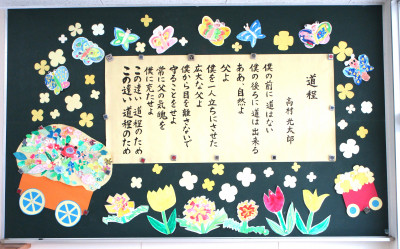 道程
高村光太郎
僕の前に道はない
僕の後ろに道は出来る
ああ、自然よ
父よ
僕を一人立ちにさせた
広大な父よ
僕から目を離さないで
守ることをせよ
常に父の気魄を
僕に充たせよ
この遠い道程のため
この遠い道程のため